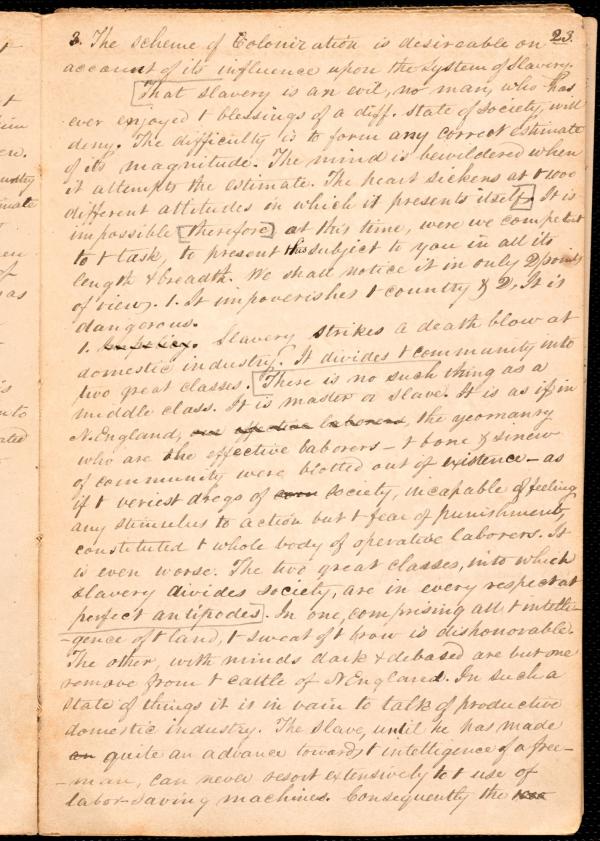 23.
3. The scheme of Colonization is desireable on
account of its influence upon the system of Slavery.
That slavery is an evil, no man, who has
ever enjoyed t blessings of a diff. state of society, will
deny. The difficulty is to form any correct estimate
of its magnitude. The mind is bewildered when
it attempts the estimate. The heart sickens at t 1000
different attitudes in which it presents itself. It is
impossible therefore at this time, were we competent
to t task, to present this subject to you in all its
length & breadth. We shall notice it in only 2 points
of view. 1. It impoverishes t country & 2. It is
dangerous.
1. Slavery strikes a death blow at
domestic industry. It divides t community into
two great classes. There is no such thing as a
middle class. It is master or slave. It is as if, in
N. England, are effective laborers, the yeomanry
who are the effective laborers – t bone & sinew
of community were blotted out of existence – as
if t veriest dregs of society, incapable of feeling
any stimulus to action but t fear of punishment,
constituted t whole body of operative laborers. It
is even worse. The two great classes, into which
slavery divides society, are in every respect at
perfect antipodes. In one, comprising all t intelli-
-gence of t land, t sweat of t brow is dishonorable.
The other, with minds dark & debased are but one
remove from t cattle of N England. In such a
state of things it is in vain to talk of productive
domestic industry. The slave, until he has made
an quite an advance towards t intelligence of a free-
-man, can never resort extensively to t use of
labor-saving machines. Consequently the